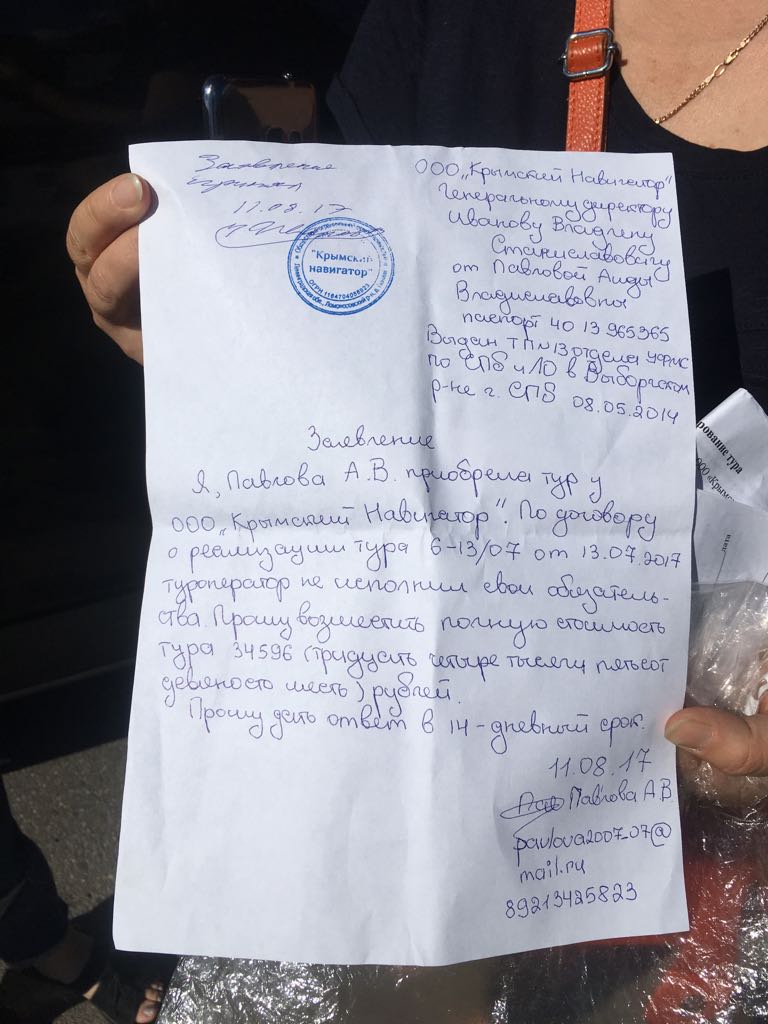 Заявление
принял
11.08.17
"Крымский
навигатор"
ОГРН 1164704058923
ООО „Крымский Навигатор"
Генеральному директору
Иванову Владлену
Станиславовичу
от Павловой Аиды
Владиславовны
паспорт 40 13 965365
Выдан ТП №13 отдела УФМС
по СПб и ЛО в Выборгском
р-не г. СПб 08.05.2014
Заявление
Я, Павлова А.В. приобрела тур у
ООО „Крымский Навигатор". По договору
о реализации тура 6-13/07 от 13.07.2017
туроператор не исполнил свои обязатель-
ства. Прошу возместить полную стоимость
тура 34596 (тридцать четыре тысячи пятьсот
девяносто шесть) рублей.
Прошу дать ответ в 14-дневный срок.
11.08.17
Павлова А.В.
pavlova2007_07@
mail.ru
89213425823
рование тура
ООО «Крымс